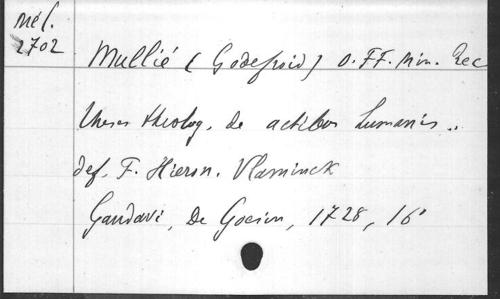 Mél.
2702
Mullié (Godefroid) O.FF. Min. Rec
Theses theolog. de actibus humanis..
def. F. Hieron. Vlaminck
Gandavi, De Goesin, 1728, 16°